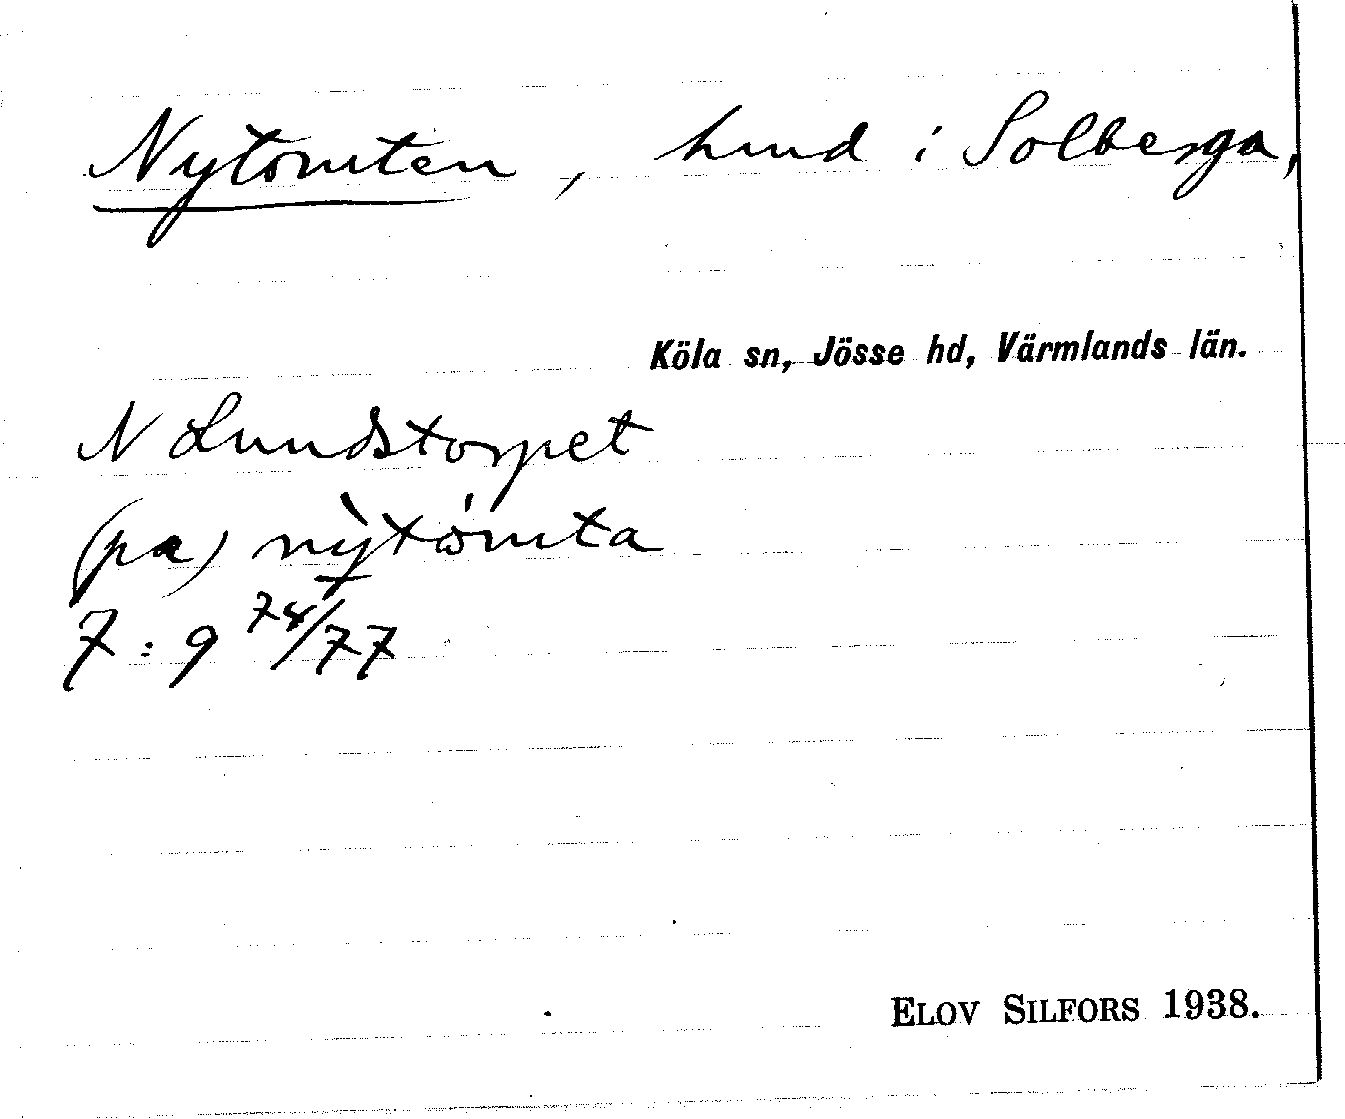 Nytomten, hmd i Solberga,
Köla sn, Jösse hd, Värmlands län.
N Lundstorpet
(pa) nỳtómta
7:9 78/77
ELOV SILFORS 1938.